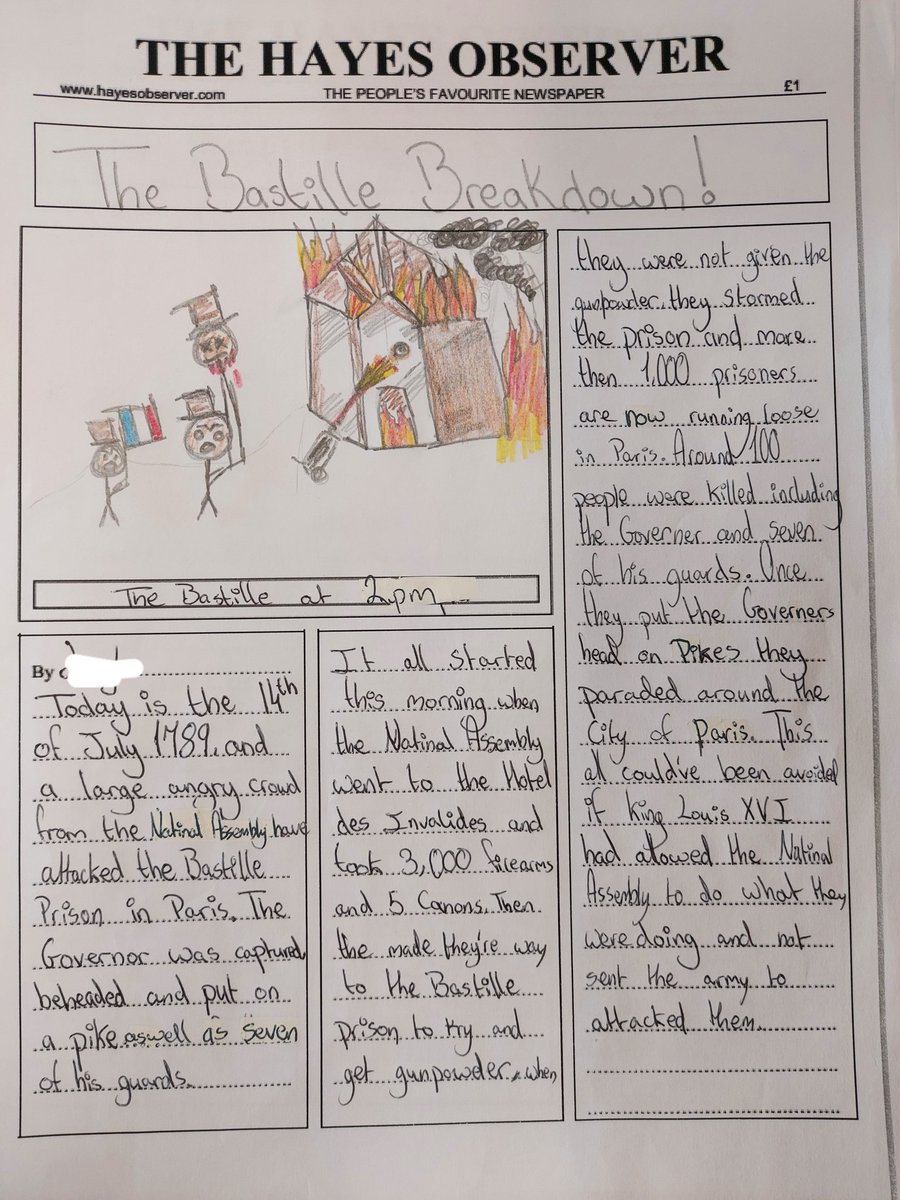 THE HAYES OBSERVER
www.hayesobserver.com THE PEOPLE'S FAVOURITE NEWSPAPER £1
The Bastille Breakdown!
The Bastille at 2pm
By
Today is the 14th
of July 1789, and
a large angry crowd
from the Natinal Assembly have
attacked the Bastille
Prison in Paris. The
Governor was captured,
beheaded and put on
a pike aswell as seven
of his guards.
It all started
this morning when
the Natinal Assembly
went to the Hotel
des Invalides and
took 3,000 firearms
and 5 Canons. Then
the made they're way
to the Bastille
prison to try and
get gunpowder. when
they were not given the
gunpowder, they stormed
the prison and more
then 1,000 prisoners
are now running loose
in Paris. Around 100
people were killed including
the Governer and seven
of his guards. Once
they put the Governers
head on Pikes they
paraded around the
City of Paris. This
all could've been avoided
if King Louis XVI
had allowed the Natinal
Assembly to do what they
were doing and not
sent the army to
attacked them.